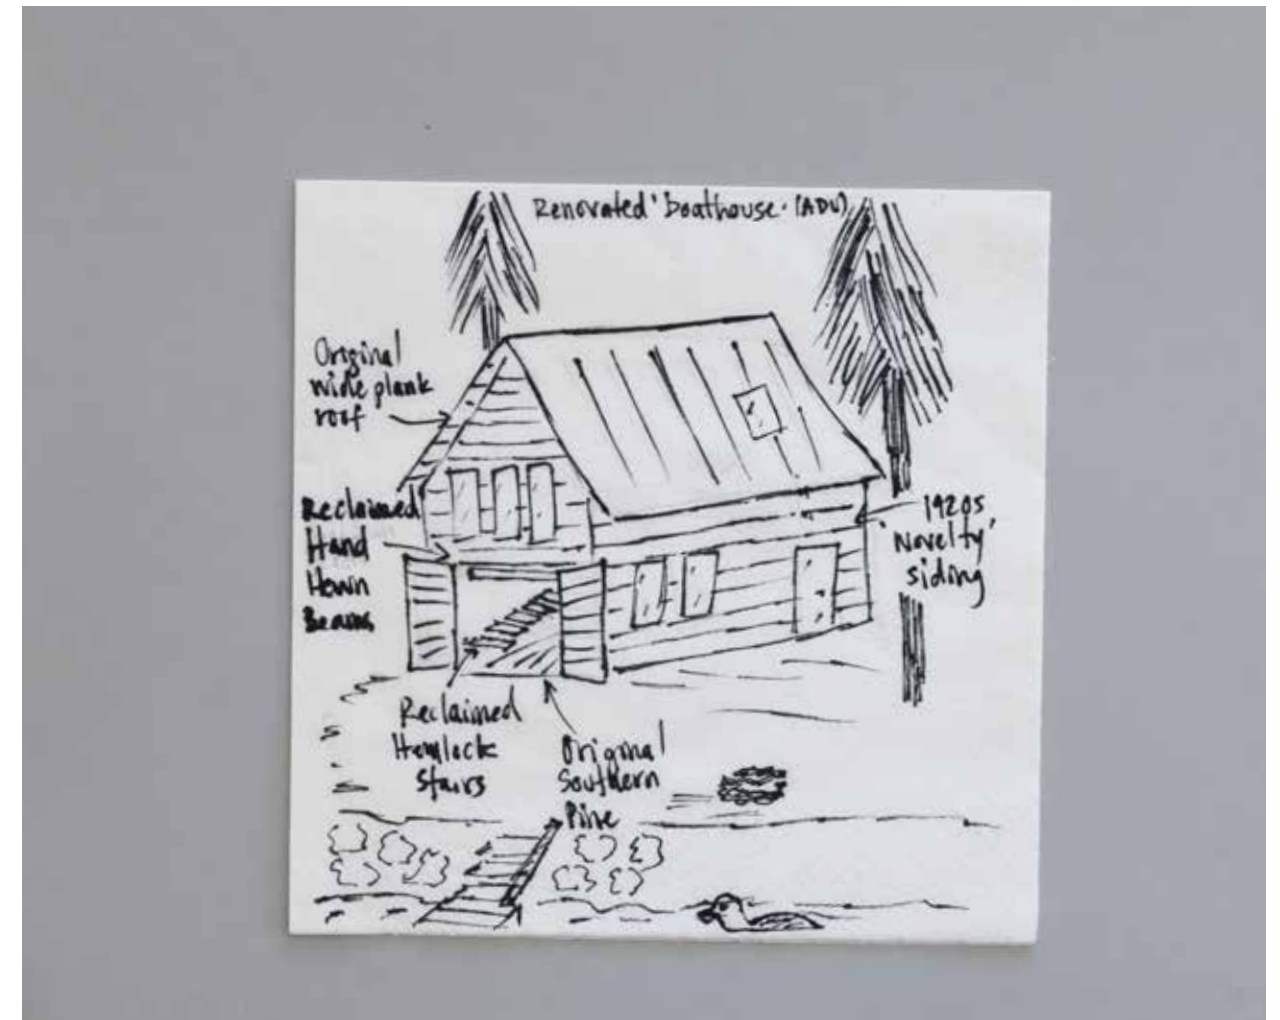 Renovated 'boathouse' (ADU)
Original
wide plank
roof
Reclaimed
Hand
Hewn
Beams
1920s
'Novelty'
siding
Reclaimed
Hemlock
Stairs
Original
Southern
Pine